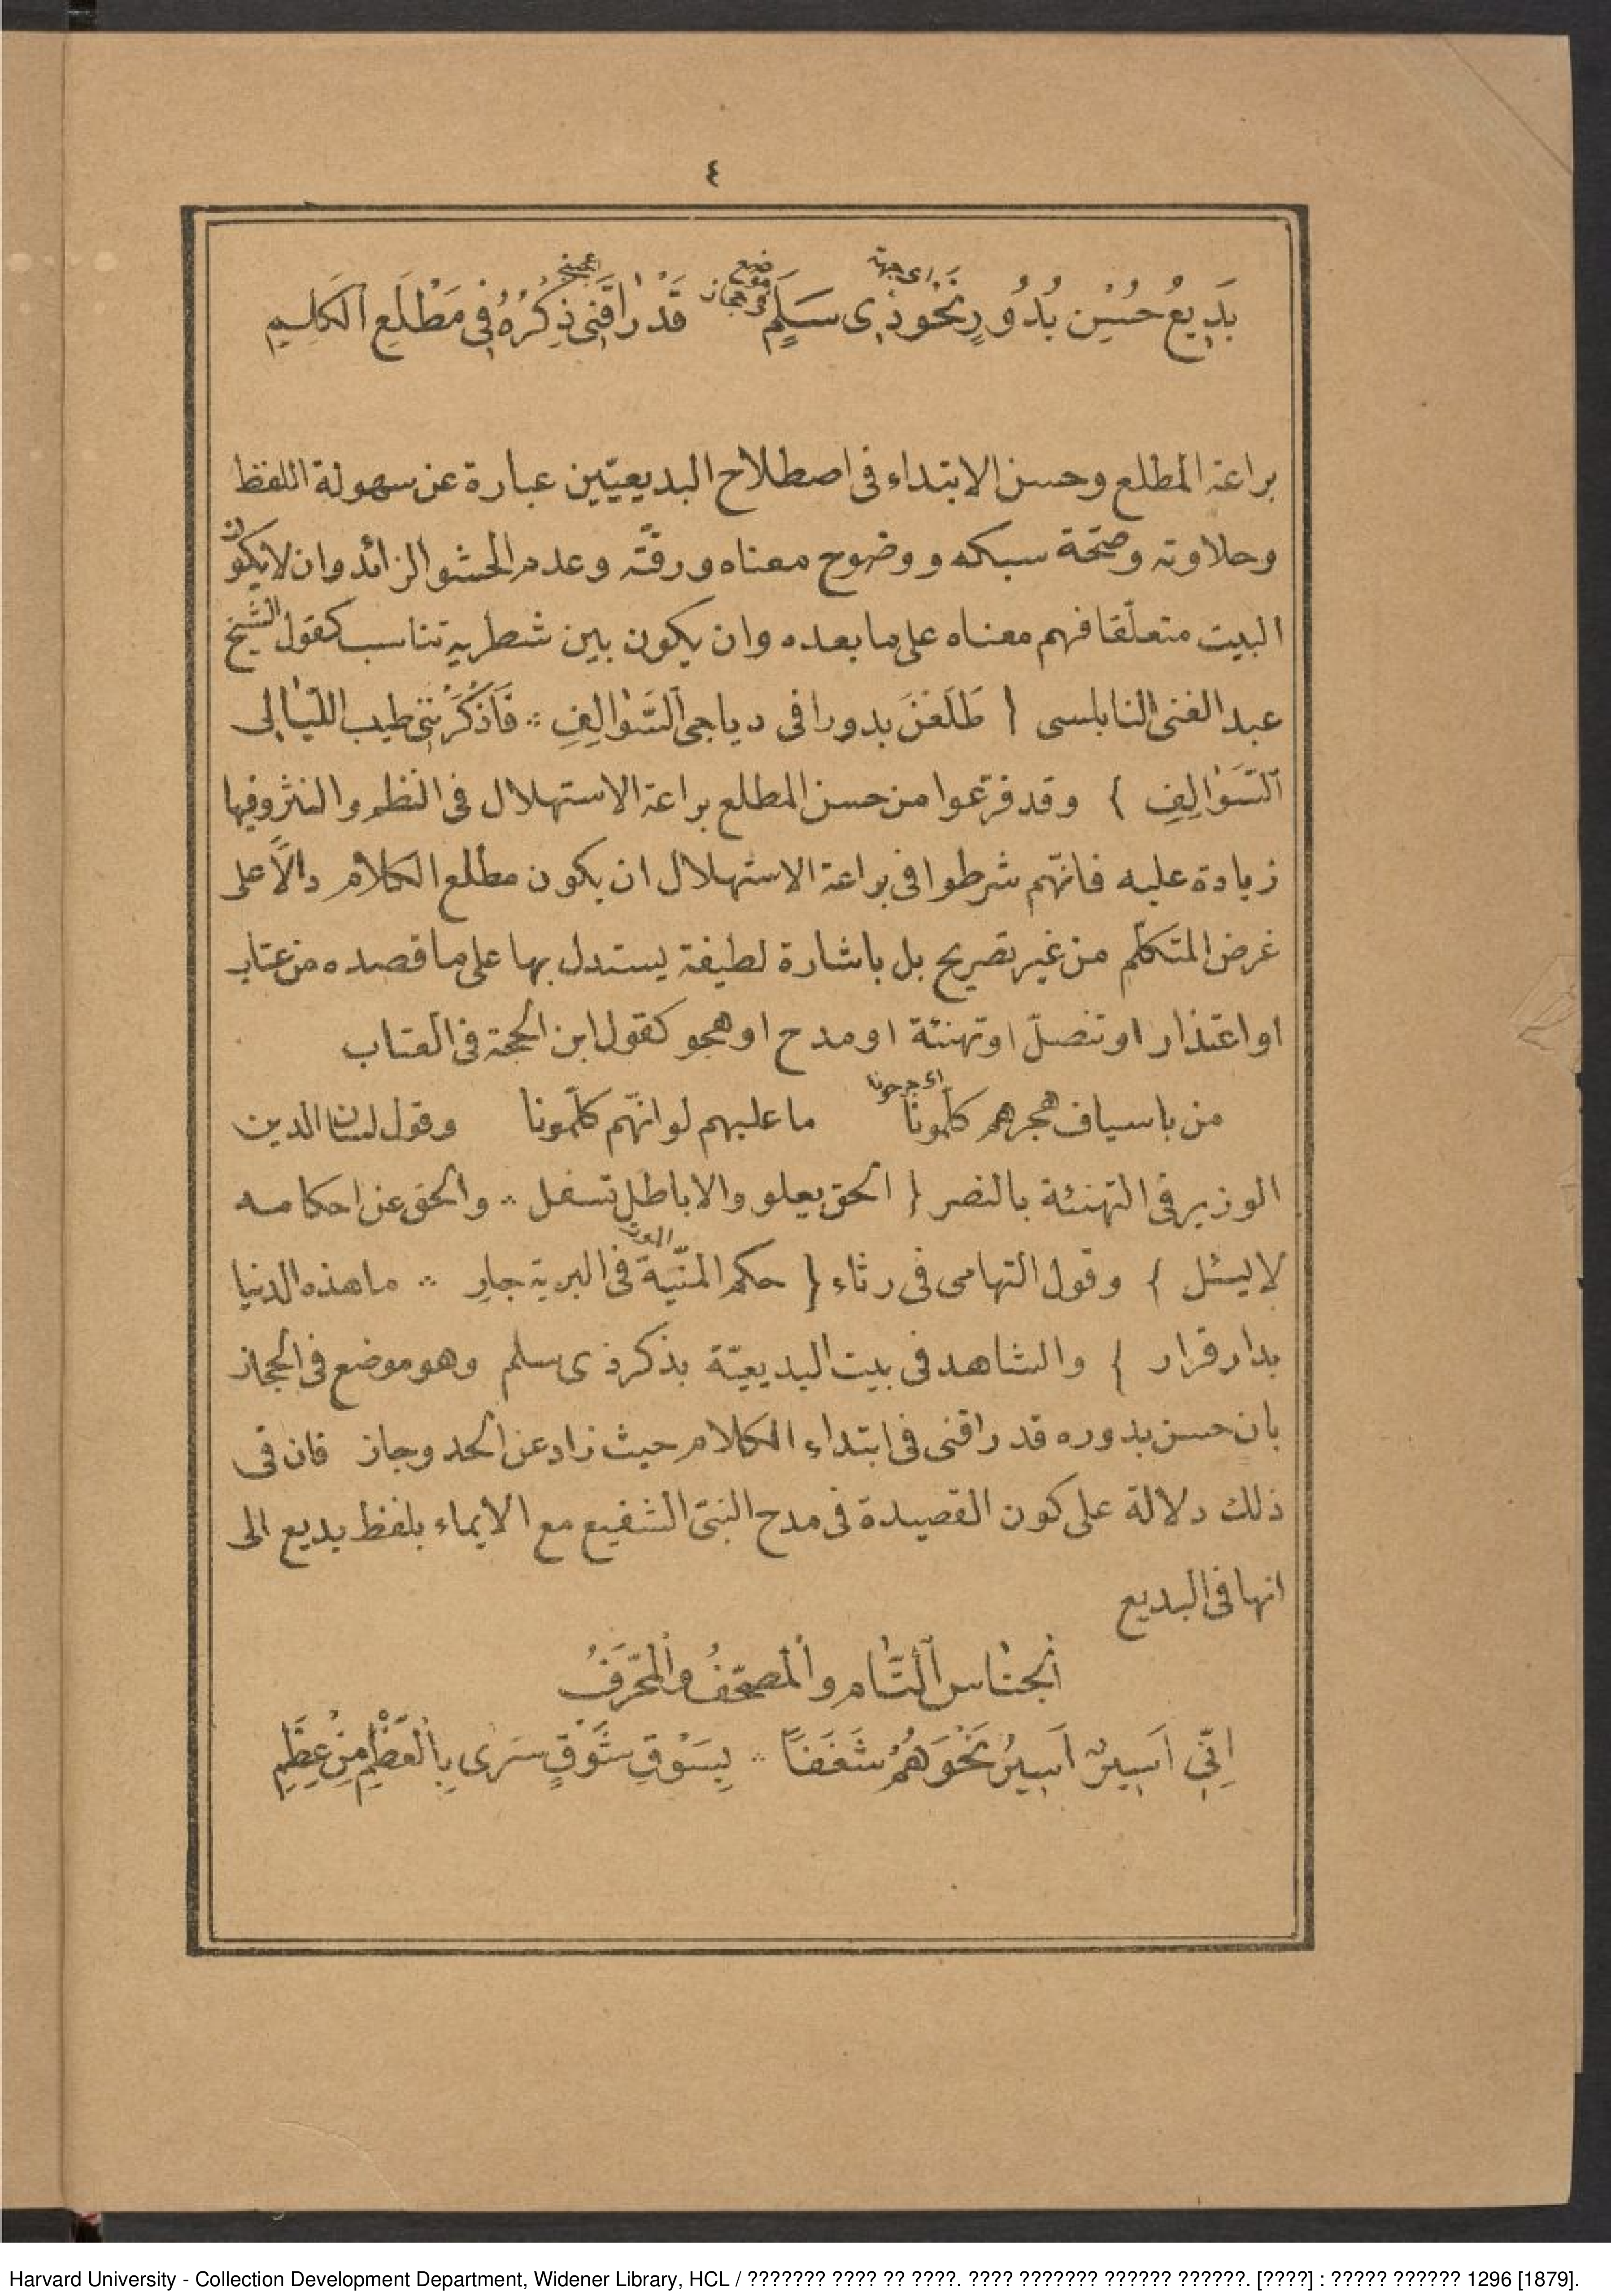 ٤
اى جهة
موضع فى حجاز
اعجبنى
بَدِيعُ حُسْنِ بُدُورٍ نَحْوَ ذِى سَلَمٍ قَدْ رَاقَنِى ذِكْرُهُ فِى مَطْلَعِ الْكَلِمِ
براعة المطلع وحسن الابتداء فى اصطلاح البديعيّين عبارة عن سهولة اللفظ
وحلاوته وصحّة سبكه ووضوح معناه ورقّته وعدم الحشو الزائد وان لا يكون
البيت متعلّقا فهم معناه على ما بعده وان يكون بين شطريه تناسب كقول الشيخ
عبد الغنى النابلسى { طَلَعْنَ بدورا فى دياجى السَّوَالِفِ ∴ فَاَذْكَرْنَنِى طيب الليالى
السَّوَالِفِ } وقد فرّعوا من حسن المطلع براعة الاستهلال فى النظم والنثر وفيها
زيادة عليه فانّهم شرطوا فى براعة الاستهلال ان يكون مطلع الكلام دالّاً على
غرض المتكلّم من غير تصريح بل باشارة لطيفة يستدل بها على ما قصده من عتاب
او اعتذار او تنصلّ او تهنئة او مدح او هجو كقول ابن الحجة فى العتاب
اى جرحونا
من باسياف هجرهم كلّمونا ما عليهم لو انّهم كلّمونا وقول لسان الدين
الوزير فى التهنئة بالنصر { الحق يعلو والاباطل تسفل ∴ والحق عن احكامه
الموت
لا يسئل } وقول التهامى فى رثاء { حكم المنيّة فى البرية جارِ ∴ ما هذه الدنيا
بدار قرار } والشاهد فى بيت البديعيّة بذكر ذى سلم وهو موضع فى الحجاز
بان حسن بدوره قد راقنى فى ابتداء الكلام حيث زاد عن الحد وجاز فان فى
ذلك دلالة على كون القصيدة فى مدح النبىّ الشفيع مع الايماء بلفظ بديع الى
انها فى البديع
اَلْجِنَاسُ التَّام وَالْمُصَحَّفُ وَالْمُحَرَّفُ
اِنِّى اَسِيرٌ اَسِيرُ نَحْوَهُمْ شَغَفًا ∴ بِسَوْقِ شَوْقٍ سَرَى بِالْعَظْمِ مِنْ عِظَمِ
Harvard University - Collection Development Department, Widener Library, HCL / ??????? ???? ?? ????. ???? ??????? ?????? ??????. [????] : ????? ?????? 1296 [1879].